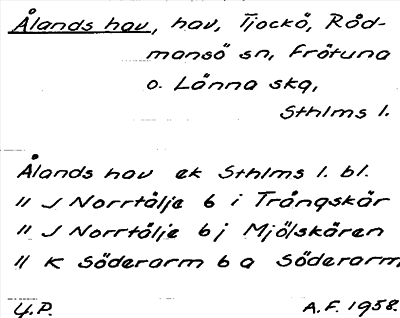 Ålands hav, hav, Tjockö, Råd-
mansö sn, Frötuna
o. Länna skg,
Sthlms l.
Ålands hav ek Sthlms l. bl.
" J Norrtälje 6 i Trångskär
" J Norrtälje 6 j Mjölskären
" K Söderarm 6 a Söderarm
Y.P. A.F. 1958.